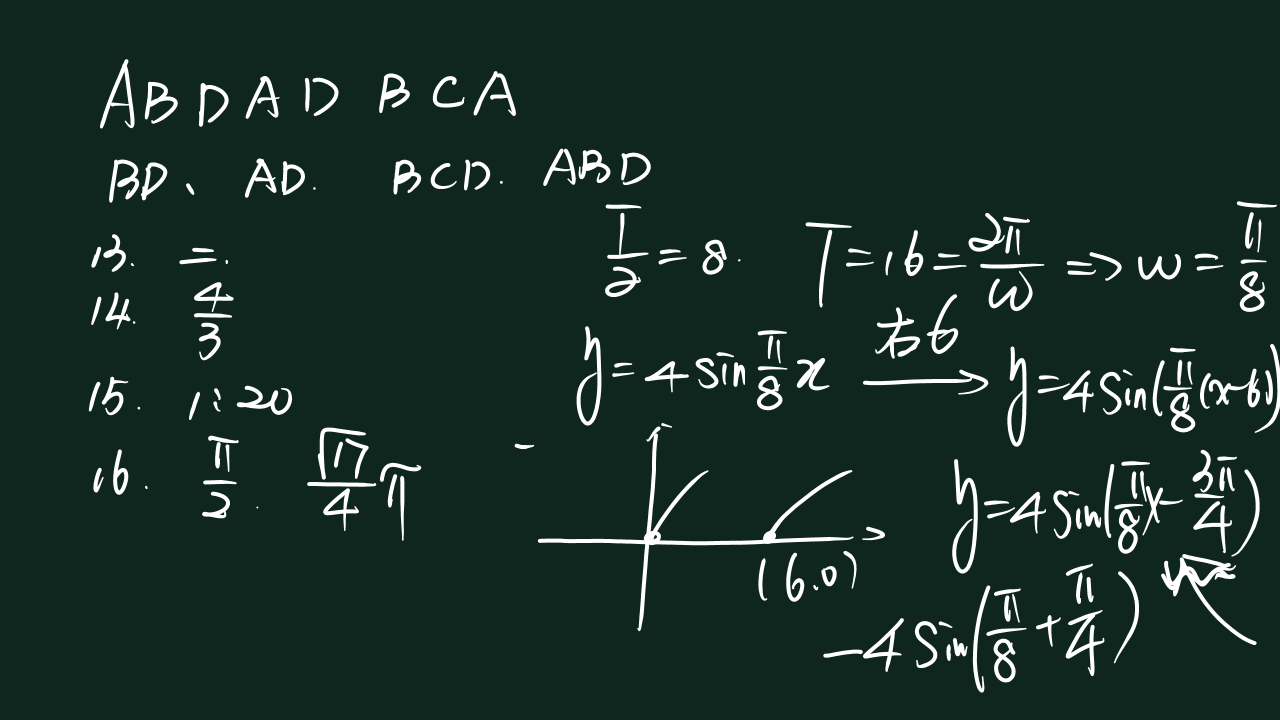 ABDAD BCA
BD、 AD. BCD. ABD
13. 二.
14. 4/3
15. 1:20
16. π/2. √17/4 π
T/2 = 8. T = 16 = 2π/w => w = π/8
y = 4 sin π/8 x 右6 → y = 4 sin(π/8 (x-6))
y = 4 sin(π/8 x - 3π/4)
(6.0)
-4 sin(π/8 + π/4)